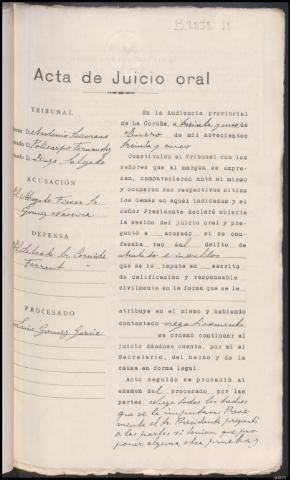 Acta de Juicio oral
TRIBUNAL
D. Antonio
D. Policarpo Fernandez
D. Diego Salgado
ACUSACIÓN
El Abogado Fiscal Sr.
Gomez
DEFENSA
El Letrado Sr. Cornide
Ferrant
PROCESADO
Luis Gomez Garcia
En la Audiencia provincial
de La Coruña, a treinta y uno de
Enero de mil novecientos
treinta y cinco
Constituido el Tribunal con los
señores que al margen se expre-
san, comparecieron ante el mismo
y ocuparon sus respectivos sitios
los demás en aquel indicados y el
señor Presidente declaró abierta
la sesión del juicio oral y pre-
guntó a acusado si se con-
fesaba reo del delito de
atentado e insultos
que se le imputa en escrito
de calificación y responsable
civilmente en la forma que se le
atribuye en el mismo y habiendo
contestado negativamente
se ordenó continuar el
juicio dándose cuenta, por mí el
Secretario, del hecho y de la
causa en forma legal.
Acto seguido se procedió al
examen del procesado por las
partes. Niega todos los hechos
que se le imputan
el Sr. Presidente preguntó
a las partes si tenían que pro-
poner alguna otra prueba y